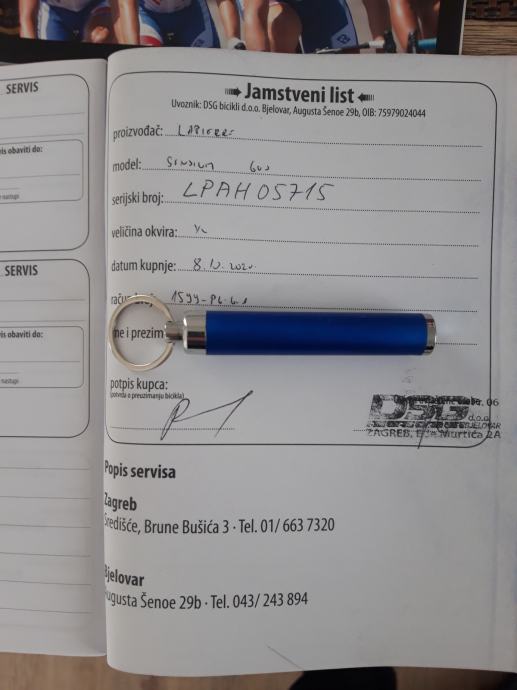 SERVIS
vis obaviti do:
nastupi
SERVIS
vis obaviti do:
nastupi
Jamstveni list
Uvoznik: DSG bicikli d.o.o. Bjelovar, Augusta Šenoe 29b, OIB: 75979024044
proizvođač: LAPIERRE
model: SENSIUM 600
serijski broj: LPAH05715
veličina okvira: XL
datum kupnje: 8.10.2020
me i prezim
potpis kupca:
(potvrda o preuzimanju bicikla)
06
DSG d.o.o.
BJELOVAR
ZAGREB, Murtića 2A
Popis servisa
Zagreb
Središće, Brune Bušića 3 · Tel. 01/ 663 7320
Bjelovar
Augusta Šenoe 29b · Tel. 043/ 243 894